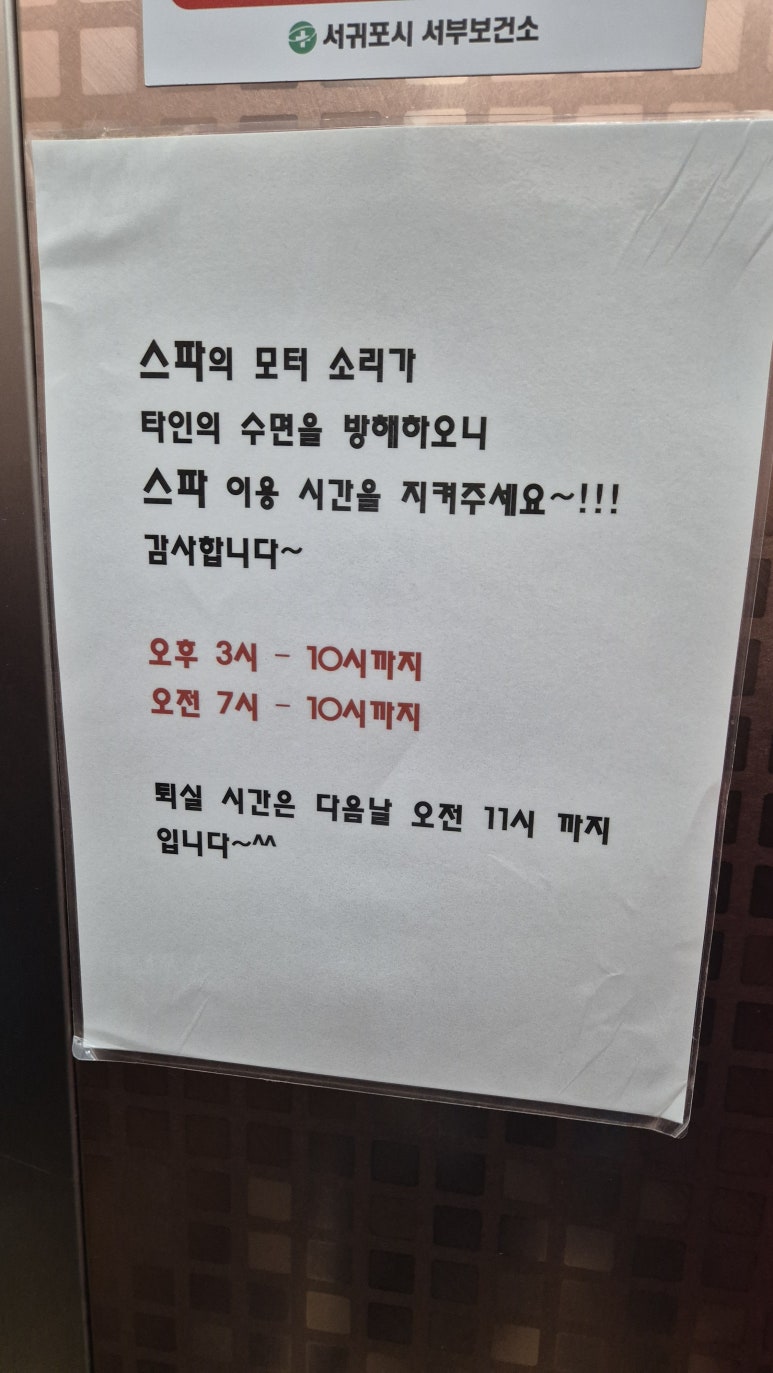 서귀포시 서부보건소
스파의 모터 소리가
타인의 수면을 방해하오니
스파 이용 시간을 지켜주세요~!!!
감사합니다~
오후 3시 - 10시까지
오전 7시 - 10시까지
퇴실 시간은 다음날 오전 11시 까지
입니다~^^